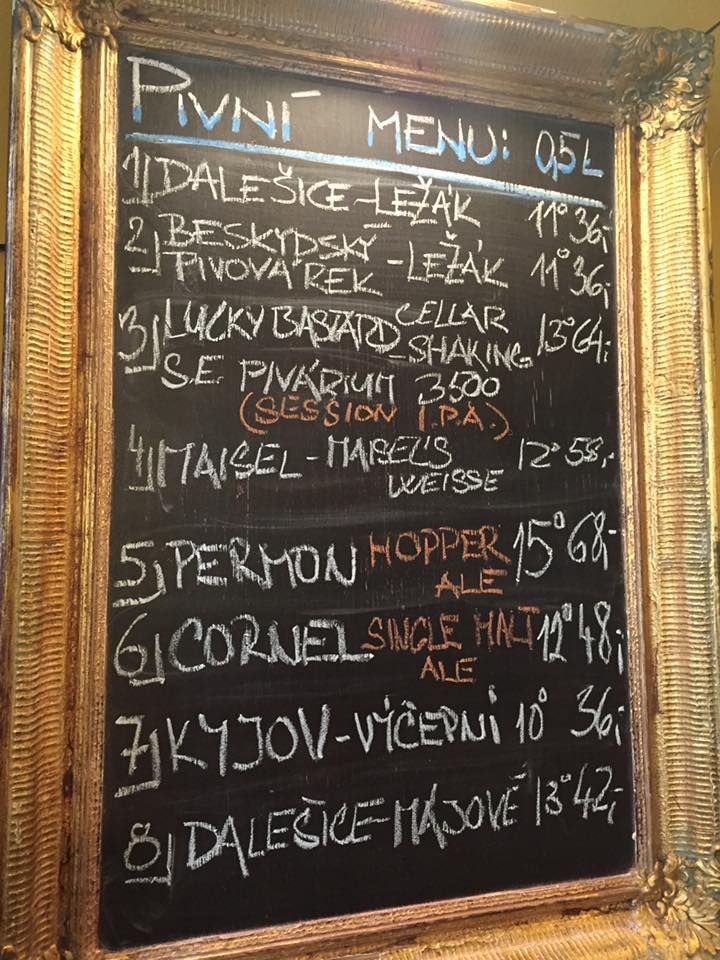 PIVNÍ MENU: 0,5L
1) DALEŠICE-LEŽÁK 11° 36,-
2) BESKYDSKÝ PIVOVÁREK - LEŽÁK 11° 36,-
3) LUCKY BASTARD CELLAR-SHAKING 13° 64,-
S.E. PIVÁRIUM 3500
(SESSION I.P.A.)
4) MAISEL - MAISEL'S WEISSE 12° 58,-
5) PERMON HOPPER ALE 15° 68,-
6) CORNEL SINGLE MALT ALE 12° 48,-
7) KYJOV-VÝČEPNÍ 10° 36,-
8) DALEŠICE-MÁJOVÉ 13° 42,-